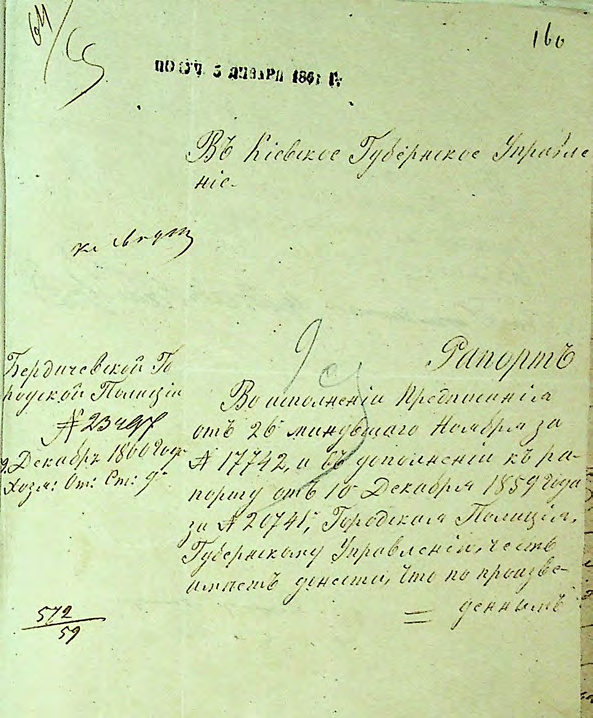 64
160
ПОЛУЧ. 5 ЯНВАРЯ 1861 Г.
Въ Кіевское Губернское Управле
ніе.
Рапортъ
Бердичевской Го
родской Полиціи
Декабря 1860 года
Хозяй: От: Ст: 9.
Во исполненіи Предписанія
отъ 26 минувшаго Ноября за
№ 17742, и въ дополненіи къ ра-
порту отъ 10 Декабря 1859 года
за № 20741, Городская Полиція,
Губернскому Управленію, честь
имѣетъ донести, что по произве-
деннымъ
572
59